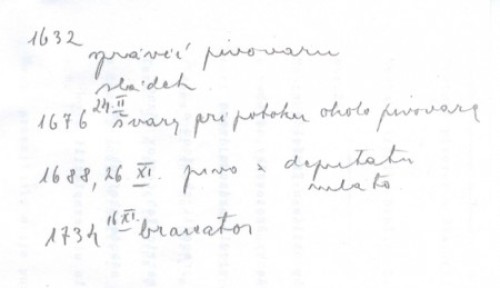 1632
správčí pivovaru
sládek
1676 24. II švary pri potoku okolo pivovara
1688, 26 XI. pivo z deputatu
mlato
1734 16 XI. braxator